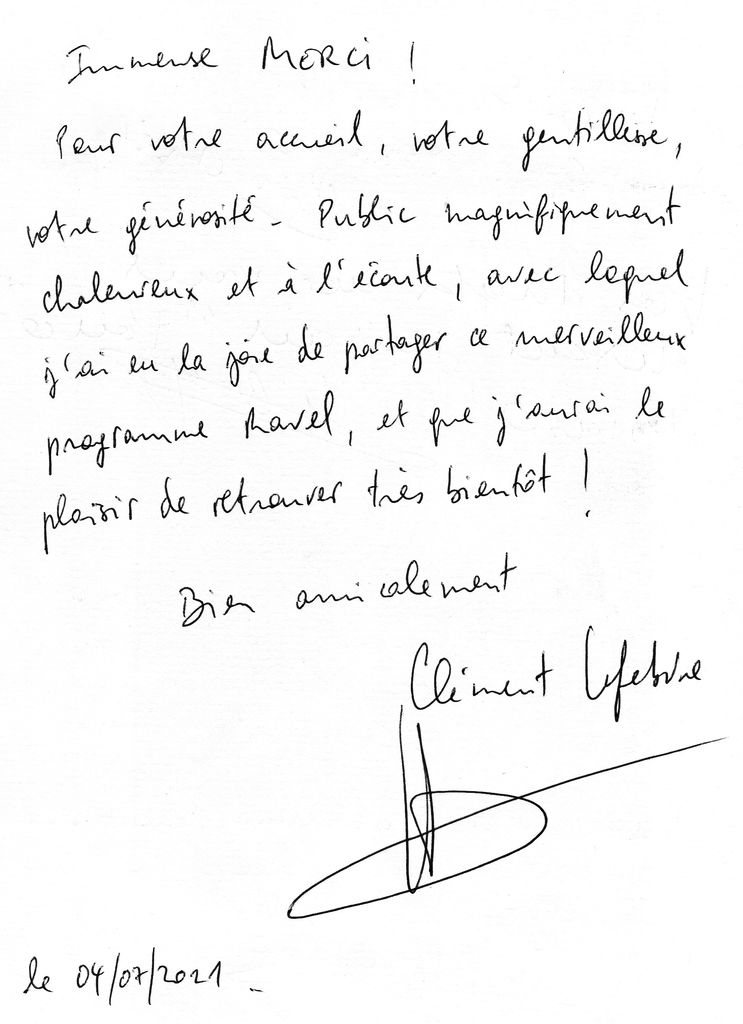 Immense MERCI !
Pour votre accueil, votre gentillesse,
votre générosité - Public magnifiquement
chaleureux et à l'écoute, avec lequel
j'ai eu la joie de partager ce merveilleux
programme Ravel, et que j'aurai le
plaisir de retrouver très bientôt !
Bien amicalement
Clément Lefebvre
le 04/07/2021 -